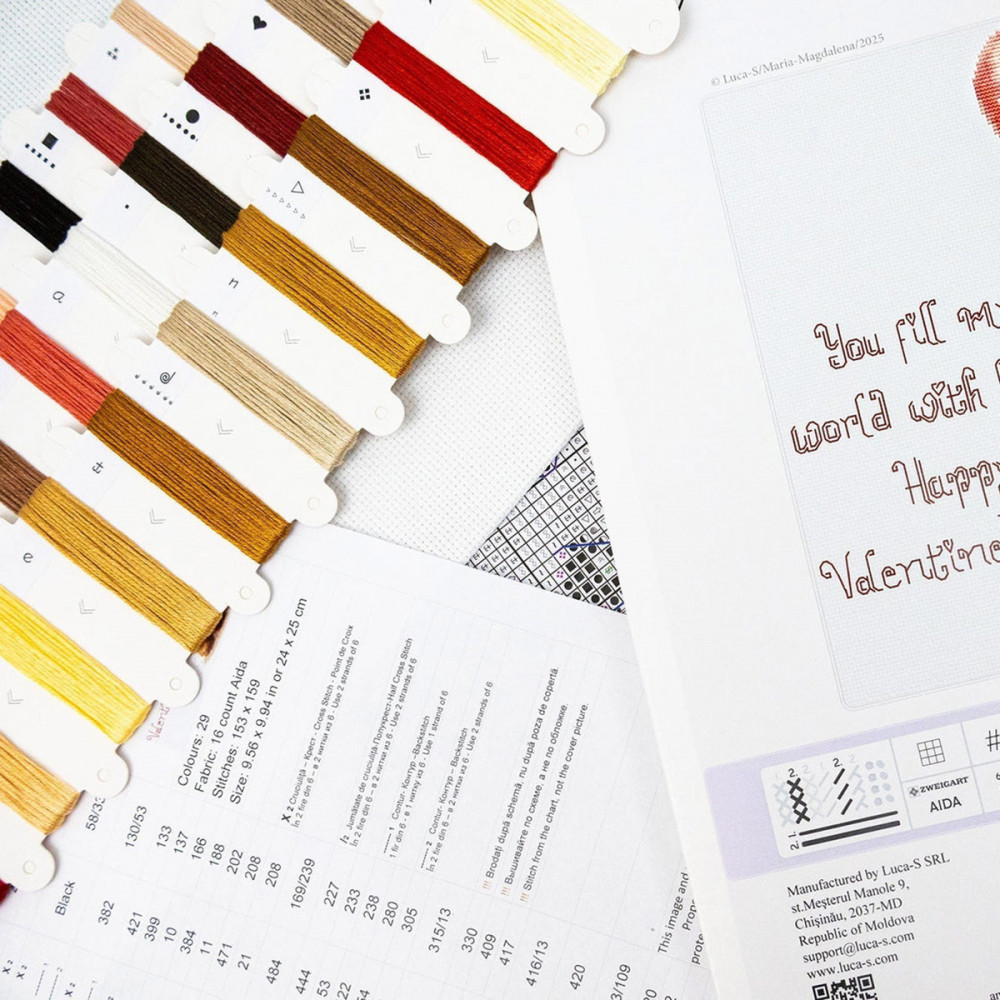 © Luca-S/Maria-Magdalena/2025
You fill my
world with
Happy
Valentine
ZWEIGART
AIDA
Manufactured by Luca-S SRL
st.Meșterul Manole 9,
Chișinău, 2037-MD
Republic of Moldova
support@luca-s.com
www.luca-s.com
Colours: 29
Fabric: 16 count Aida
Stitches: 153 x 159
Size: 9.56 x 9.94 in or 24 x 25 cm
X 2 Cruciuliță - Крест - Cross Stitch - Point de Croix
În 2 fire din 6 – в 2 нитки из 6 - Use 2 strands of 6
/2 Jumătate de cruciuliță-Полукрест-Half Cross Stitch
În 2 fire din 6 – в 2 нитки из 6 - Use 2 strands of 6
1 Contur- Контур –Backstitch
1 fir din 6 - в 1 нитку из 6 - Use 1 strand of 6
2 Contur- Контур – Backstitch
În 2 fire din 6 – в 2 нитки из 6 - Use 2 strands of 6
!!! Brodați după schemă, nu după poza de copertă.
!!! Вышивайте по схеме, а не по обложке.
!!! Stitch from the chart, not the cover picture.
This image and
130/53
133
137
166
188
202
208
208
169/239
227
233
238
280
305
315/13
330
409
417
416/13
420
Black
382
421
399
10
384
11
471
21
484
444
53
22
54